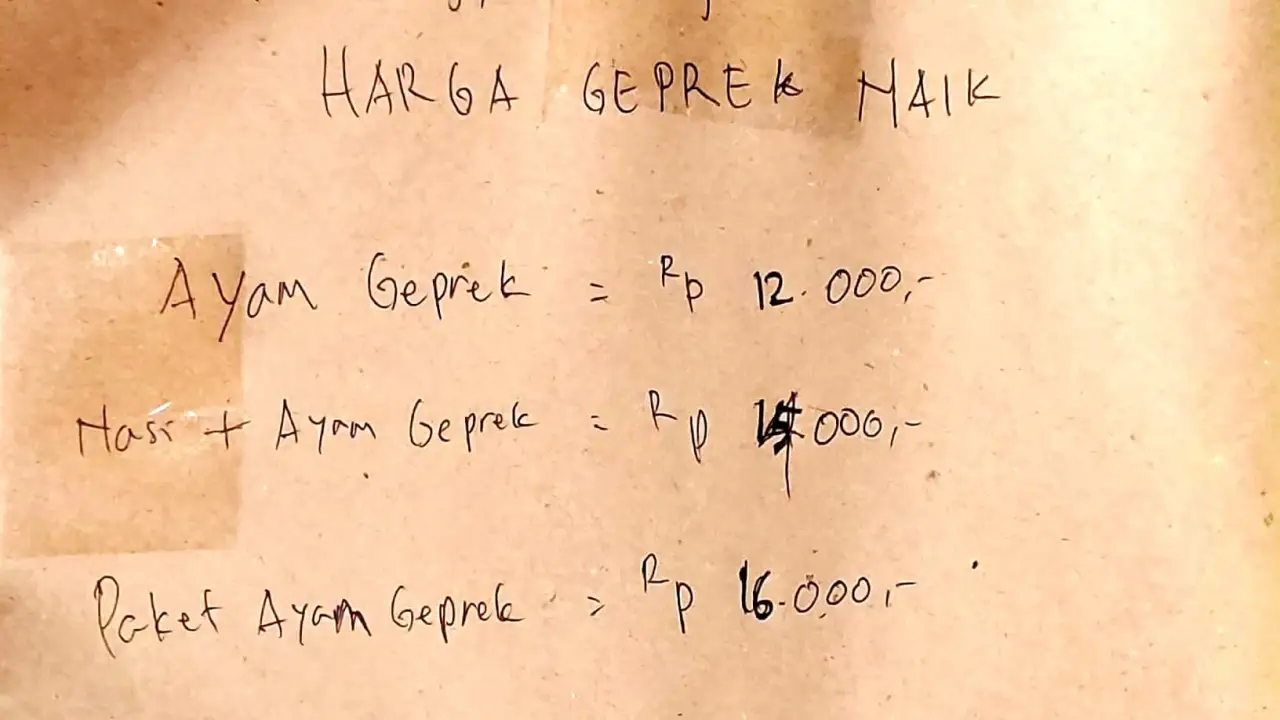 HARGA GEPREK NAIK
Ayam Geprek = Rp 12.000,-
Nasi + Ayam Geprek = Rp 14000,-
Paket Ayam Geprek = Rp 16.000,-